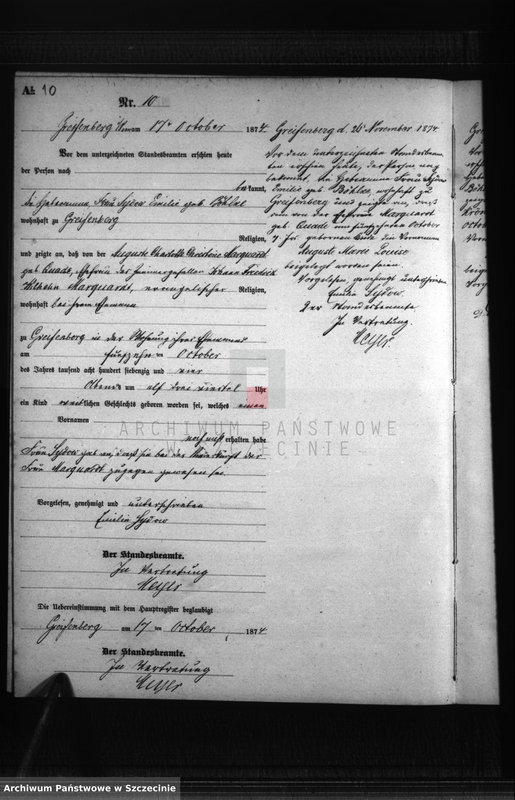 № 10
Nr. 10
Greifenberg i/Pomm am 17ten October 1874.
Vor dem unterzeichneten Standesbeamten erschien heute
der Person nach
bekannt,
die Hebeamme, Frau Sydow Emilie geb. Böhlke
wohnhaft zu Greifenberg
Religion,
und zeigte an, daß von der Auguste Charlotte Marquardt
geb. Quade, Ehefrau des Johann Friedrich
Wilhelm Marquardt, evangelischer Religion,
wohnhaft bei ihrem Ehemanne
zu Greifenberg in der Wohnung ihres Ehemannes
am fünfzehnten October
des Jahres tausend acht hundert siebenzig und vier
Abends um elf drei viertel Uhr
ein Kind weiblichen Geschlechts geboren worden sei, welches einen
Vornamen
noch nicht erhalten habe
Frau Sydow gab an, daß sie bei der Niederkunft der
Frau Marquardt zugegen gewesen sei.
Vorgelesen, genehmigt und unterschrieben
Emilie Sydow
Der Standesbeamte.
In Vertretung
Die Uebereinstimmung mit dem Hauptregister beglaubigt
Greifenberg am 17 ten October 1874
Der Standesbeamte.
In Vertretung
Greifenberg d. 26 November 1874
Vor dem unterzeichneten Standesbeam-
ten erschien heute, der Person nach
bekannt, die Hebeamme Frau Sydow
Emilie geb. Böhlke, wohnhaft zu
Greifenberg und zeigte an, daß
dem von der Ehefrau Marquardt
geb. Quade am fünfzehnten October
d. J. geborenen Kinde die Vornamen
Auguste Marie Louise
beigelegt worden seien.
Vorgelesen, genehmigt unterschrieben
Emilie Sydow.
Der Standesbeamte
In Vertretung.
ARCHIWUM PAŃSTWOWE
W SZCZECINIE
Archiwum Państwowe w Szczecinie